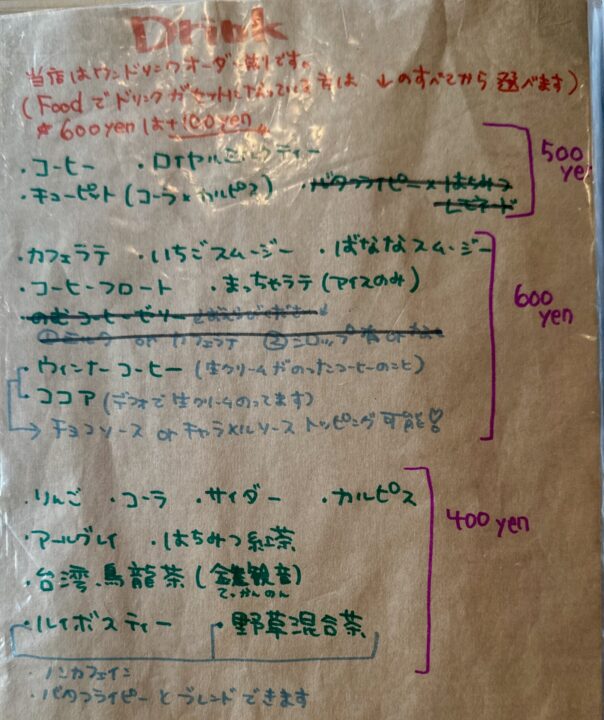 Drink
当店はワンドリンクオーダー制りです。
(Foodでドリンクがセットになっている方は ↓のすべてから選べます)
* 600yenは+100yen
・コーヒー ・ロイヤルミルクティー
・キューピット(コーラ×カルピス) ・バタフライピー×はちみつ
レモネード
500
yen
・カフェラテ ・いちごスムージー ・ばななスムージー
・コーヒーフロート ・まっちゃラテ(アイスのみ)
・のむコーヒーゼリー
①ミルク or カフェラテ ②シロップ有 or なし
600
yen
・ウィンナーコーヒー(生クリームがのったコーヒーのこと)
・ココア(デフォで生クリームのってます)
→ チョコソース or キャラメルソース トッピング可能♡
・りんご ・コーラ ・サイダー ・カルピス
400 yen
・アールグレイ ・はちみつ紅茶
・台湾烏龍茶(鉄観音)
てっかんのん
・ルイボスティー ・野草混合茶
・ノンカフェイン
・バタフライピーとブレンドできます